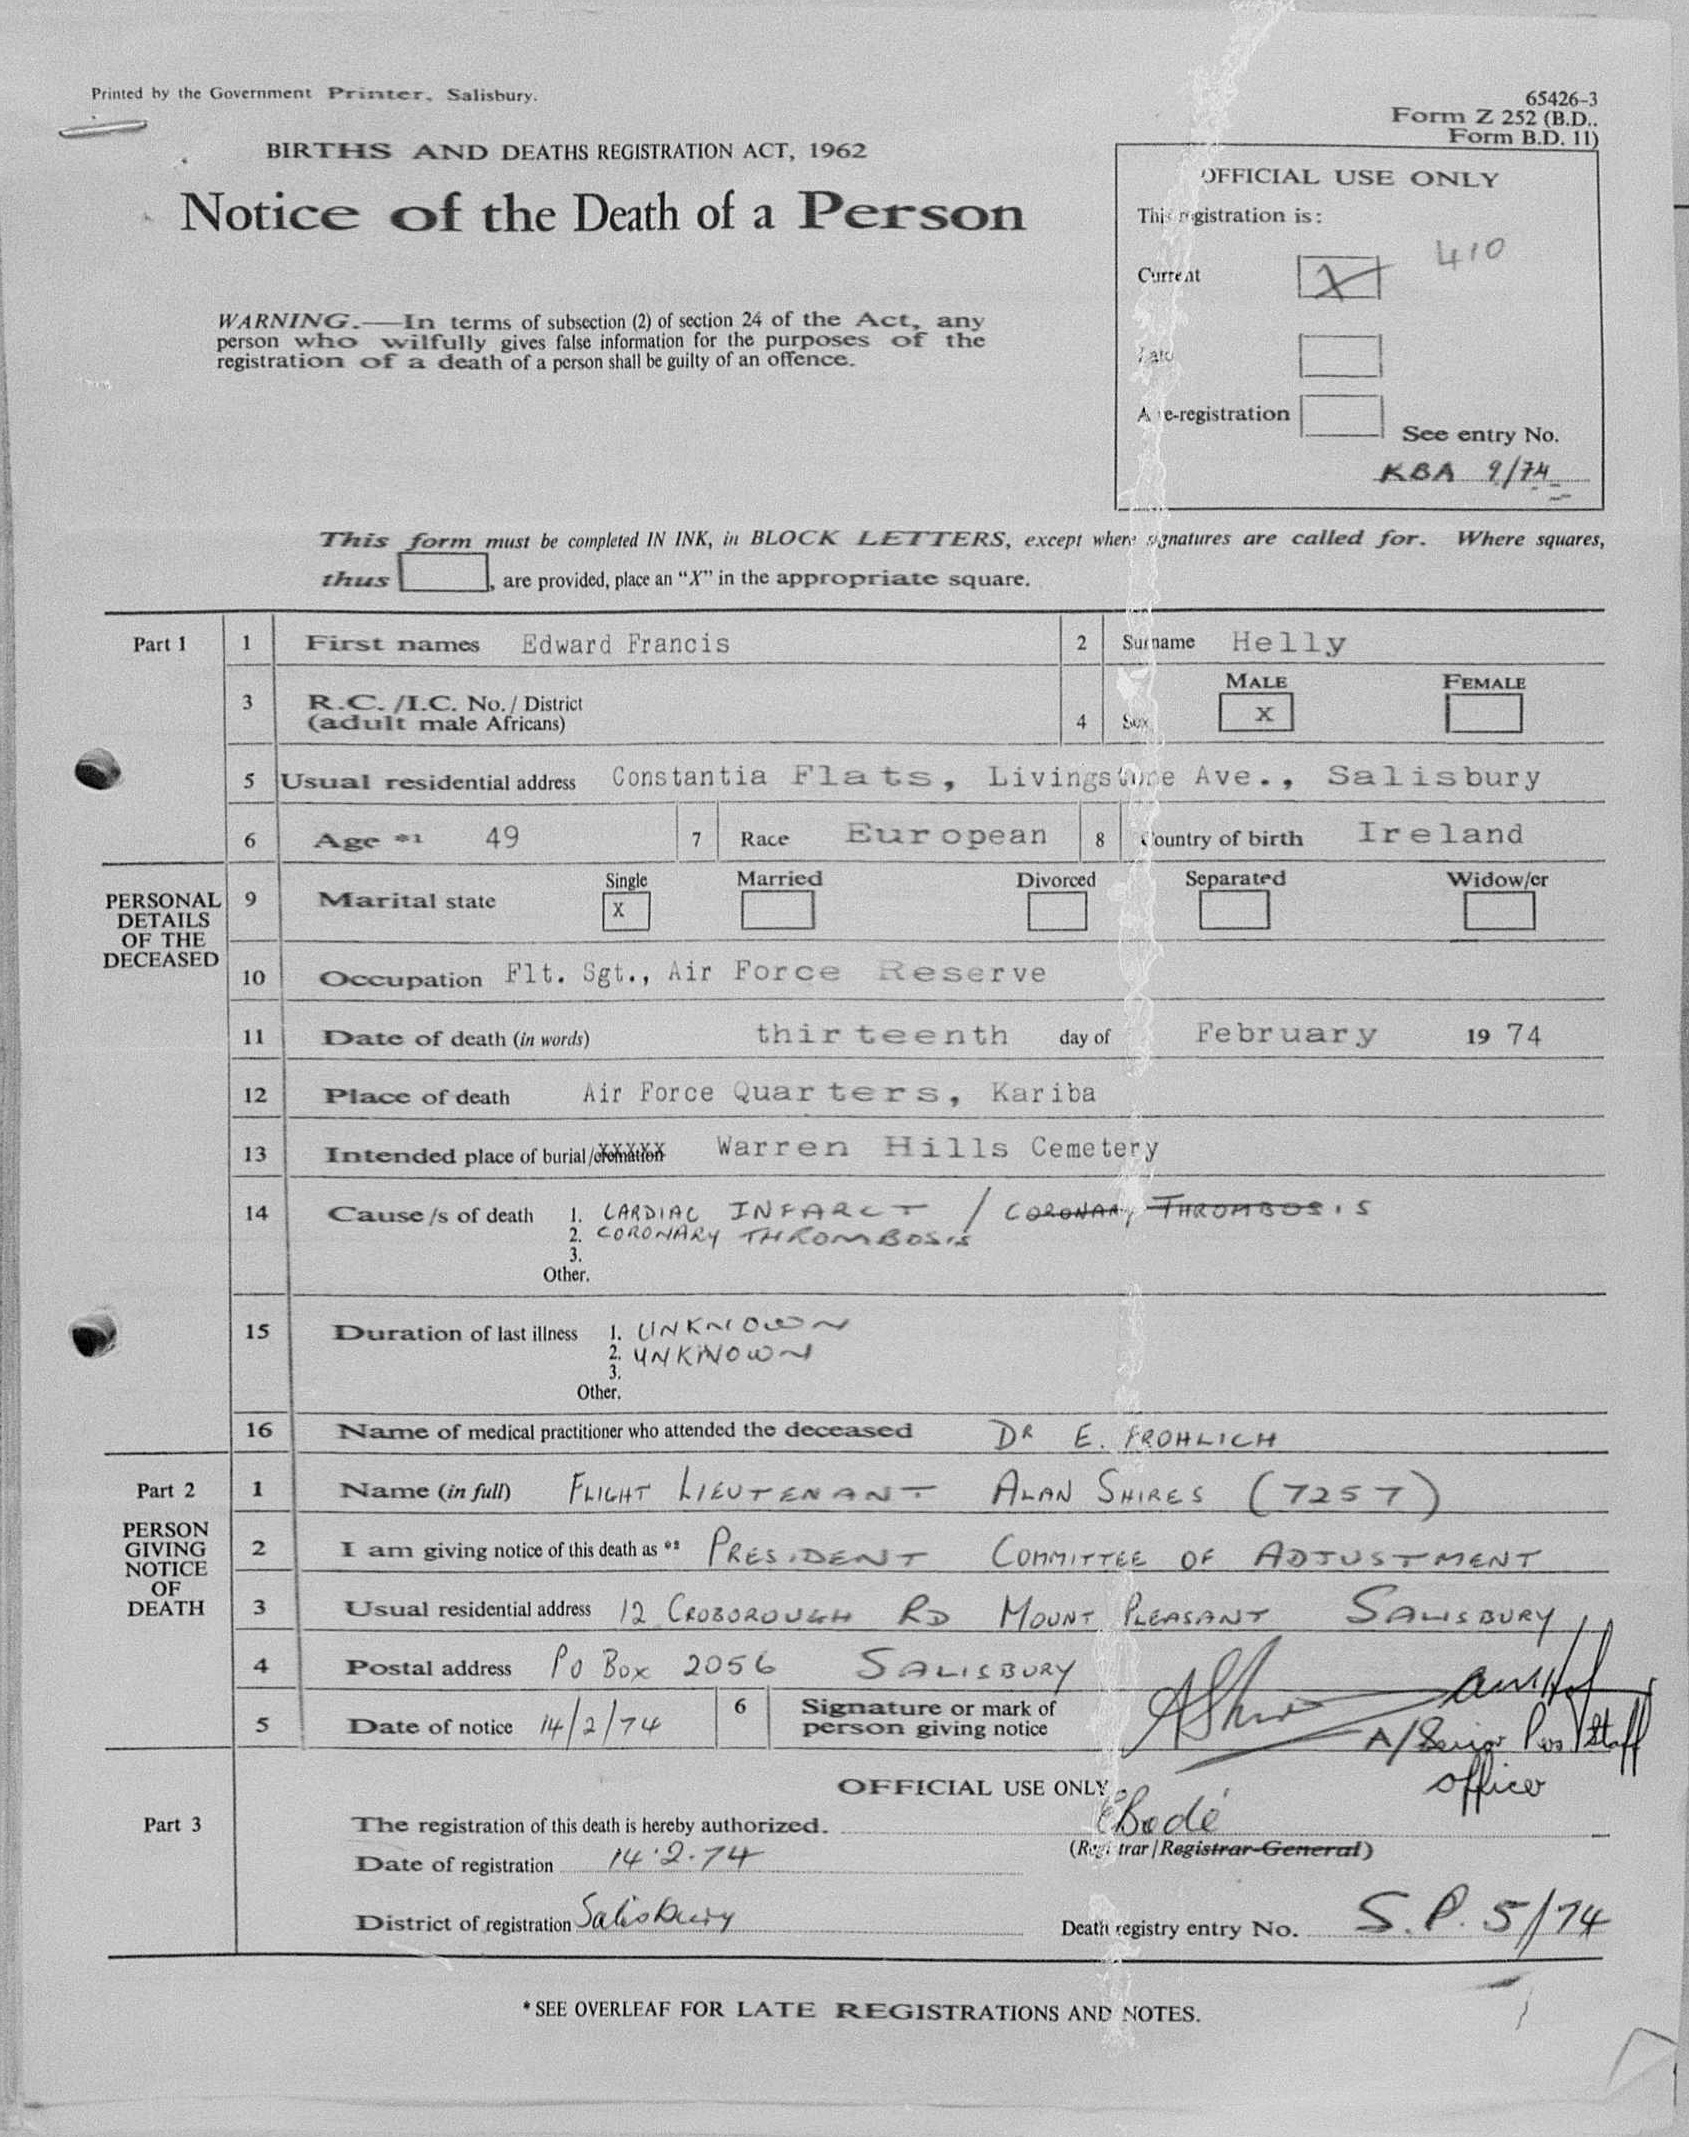 Printed by the Government Printer, Salisbury.
65426-3
Form Z 252 (B.D..
Form B.D. 11)
BIRTHS AND DEATHS REGISTRATION ACT, 1962
Notice of the Death of a Person
WARNING.—In terms of subsection (2) of section 24 of the Act, any
person who wilfully gives false information for the purposes of the
registration of a death of a person shall be guilty of an offence.
OFFICIAL USE ONLY
This registration is:
410
Current X
Late
A re-registration
See entry No.
KBA 9/74
This form must be completed IN INK, in BLOCK LETTERS, except where signatures are called for. Where squares,
thus , are provided, place an "X" in the appropriate square.
Part 1 1 First names Edward Francis 2 Surname Helly
3 R.C./I.C. No./District
(adult male Africans)
4 Sex MALE X FEMALE
5 Usual residential address Constantia Flats, Livingstone Ave., Salisbury
6 Age *1 49 7 Race European 8 Country of birth Ireland
PERSONAL
DETAILS
OF THE
DECEASED
9 Marital state Single X Married Divorced Separated Widow/er
10 Occupation Flt. Sgt., Air Force Reserve
11 Date of death (in words) thirteenth day of February 19 74
12 Place of death Air Force Quarters, Kariba
13 Intended place of burial/cremation Warren Hills Cemetery
14 Cause/s of death 1. CARDIAC INFARCT / CORONARY THROMBOSIS
2. CORONARY THROMBOSIS
3.
Other.
15 Duration of last illness 1. UNKNOWN
2. UNKNOWN
3.
Other.
16 Name of medical practitioner who attended the deceased DR E. FROHLICH
Part 2 1 Name (in full) FLIGHT LIEUTENANT ALAN SHIRES (7257)
PERSON
GIVING
NOTICE
OF
DEATH
2 I am giving notice of this death as *2 PRESIDENT COMMITTEE OF ADJUSTMENT
3 Usual residential address 12 CROBOROUGH RD MOUNT PLEASANT SALISBURY
4 Postal address PO BOX 2056 SALISBURY
5 Date of notice 14/2/74 6 Signature or mark of
person giving notice
AShires
A/Senior Pers Staff
officer
OFFICIAL USE ONLY
Part 3 The registration of this death is hereby authorized. Bodé
(Registrar/Registrar-General)
Date of registration 14.2.74
District of registration Salisbury Death registry entry No. S.P. 5/74
* SEE OVERLEAF FOR LATE REGISTRATIONS AND NOTES.